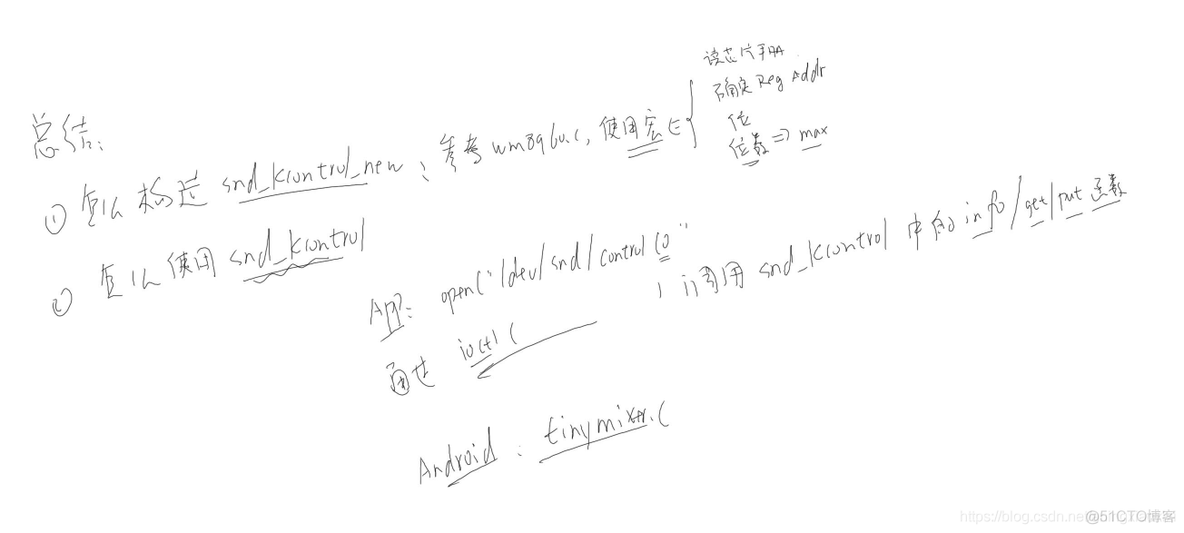 总结:
① 怎么构造 snd_kcontrol_new : 参考 wm8960.c, 使用宏 {
读芯片手册
确定 Reg Addr
位
位数 => max
② 怎么使用 snd_kcontrol
App: open("/dev/snd/controlC0"
通过 ioctl(
, 调用 snd_kcontrol 中的 info/get/put 函数
Android : tinymixer.c
https://blog.csdn.ne
@51CTO博客